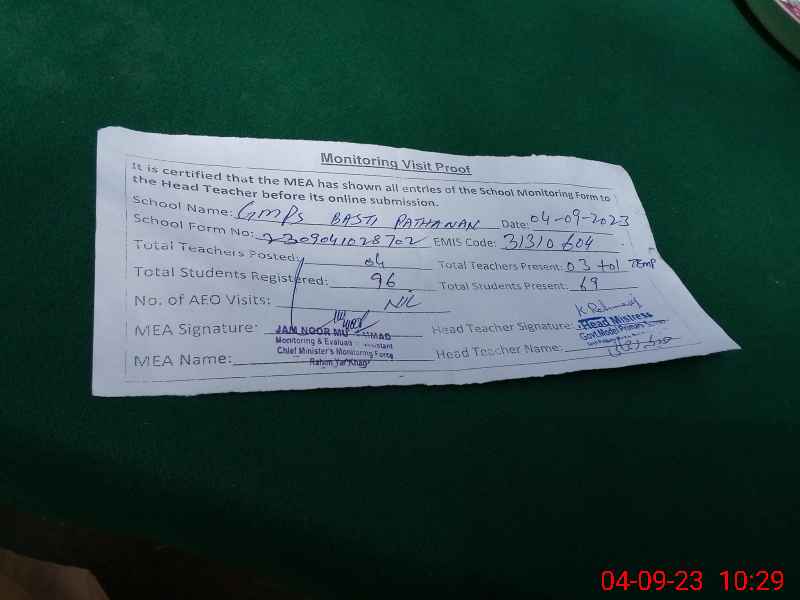 Monitoring Visit Proof
It is certified that the MEA has shown all entries of the School Monitoring Form to
the Head Teacher before its online submission.
School Name: GMPS BASTI PATHANAN Date: 04-09-2023
School Form No: 2309041028702 EMIS Code: 31310604
Total Teachers Posted: 04 Total Teachers Present: 03 +01 TEMP
Total Students Registered: 96 Total Students Present: 69
No. of AEO Visits: NIL
MEA Signature: Head Teacher Signature:
JAM NOOR MU MMAD
Monitoring & Evalua stant
Chief Minister's Monitoring Force
Rahim Yar Khan
Head Mistress
Govt.Model Primary
MEA Name: Head Teacher Name:
04-09-23 10:29